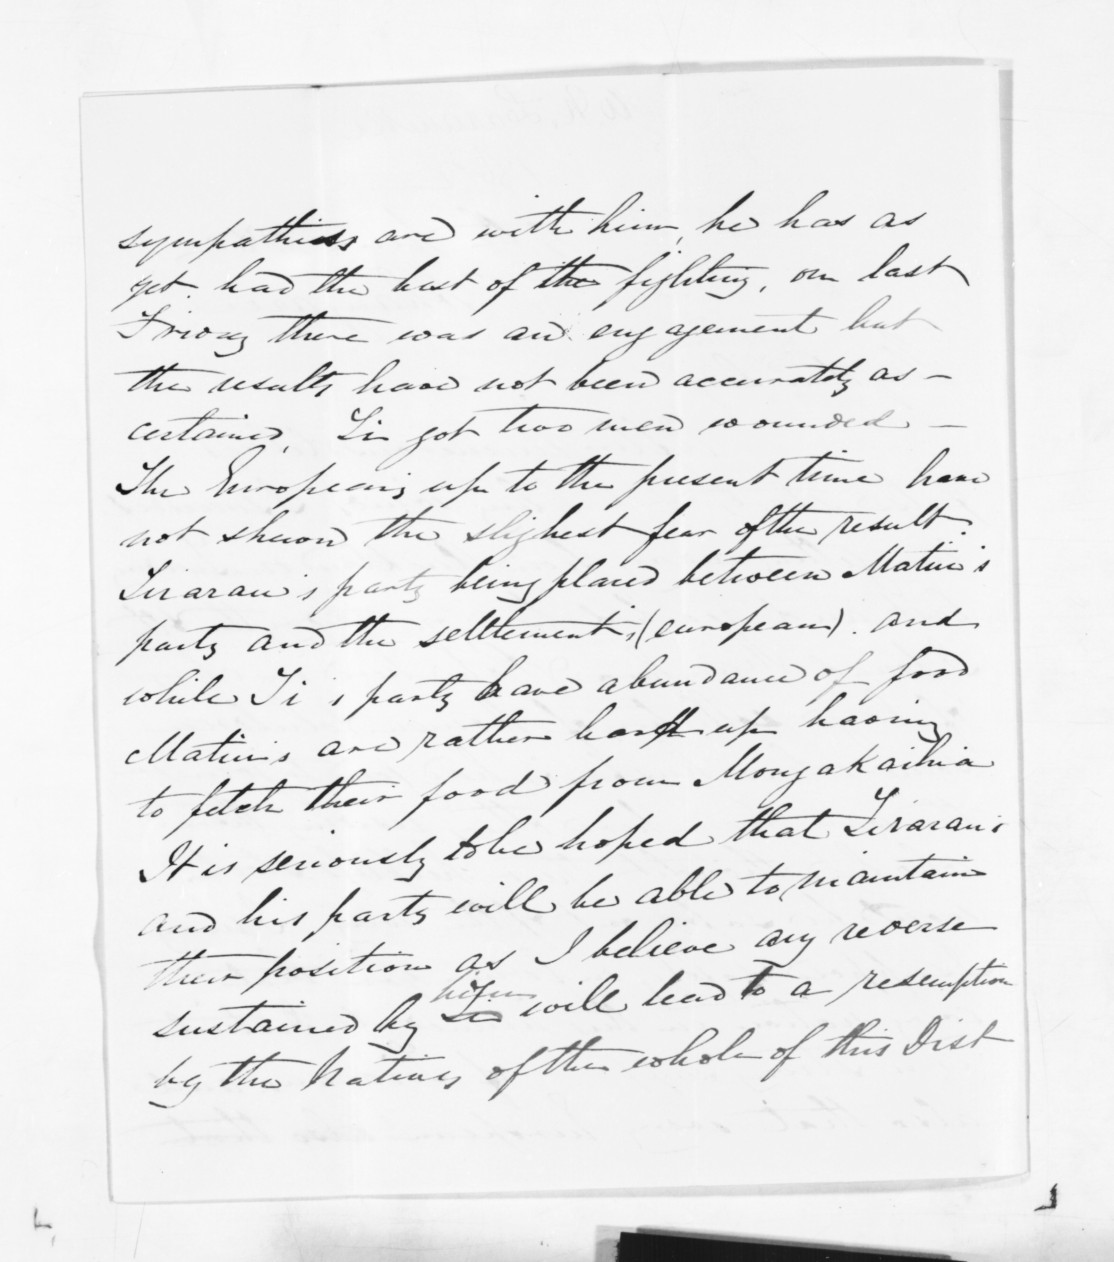 sympathies are with him, he has as
yet had the best of the fighting, on last
Friday there was an engagement but
the results have not been accurately as-
certained, Ti got two men wounded -
The Europeans up to the present time have
not shewn the slighest fear of the result.
Tirarau's party being placed between Matiu's
party and the settlements, (european). and
while Ti's party have abundance of food
Matiu's are rather hard up having
to fetch their food from Mongakaihia
It is seriously to be hoped that Tirarau
and his party will be able to maintain
their position as I believe any reverse
sustained by him will lead to a resumption
by the Natives of the whole of this Dist